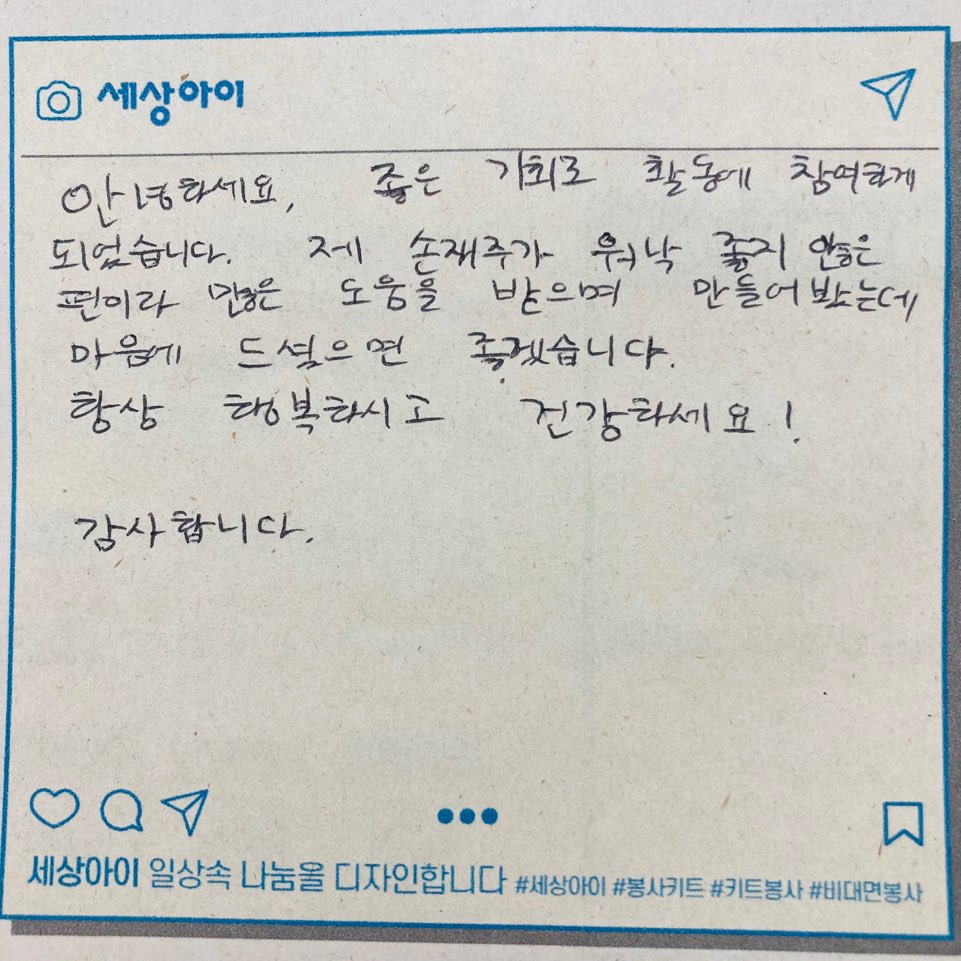 세상아이
안녕하세요, 좋은 기회로 활동에 참여하게
되었습니다. 제 손재주가 워낙 좋지 않은
편이라 많은 도움을 받으며 만들어봤는데
마음에 드셨으면 좋겠습니다.
항상 행복하시고 건강하세요!
감사합니다.
세상아이 일상속 나눔을 디자인합니다 #세상아이 #봉사키트 #키트봉사 #비대면봉사